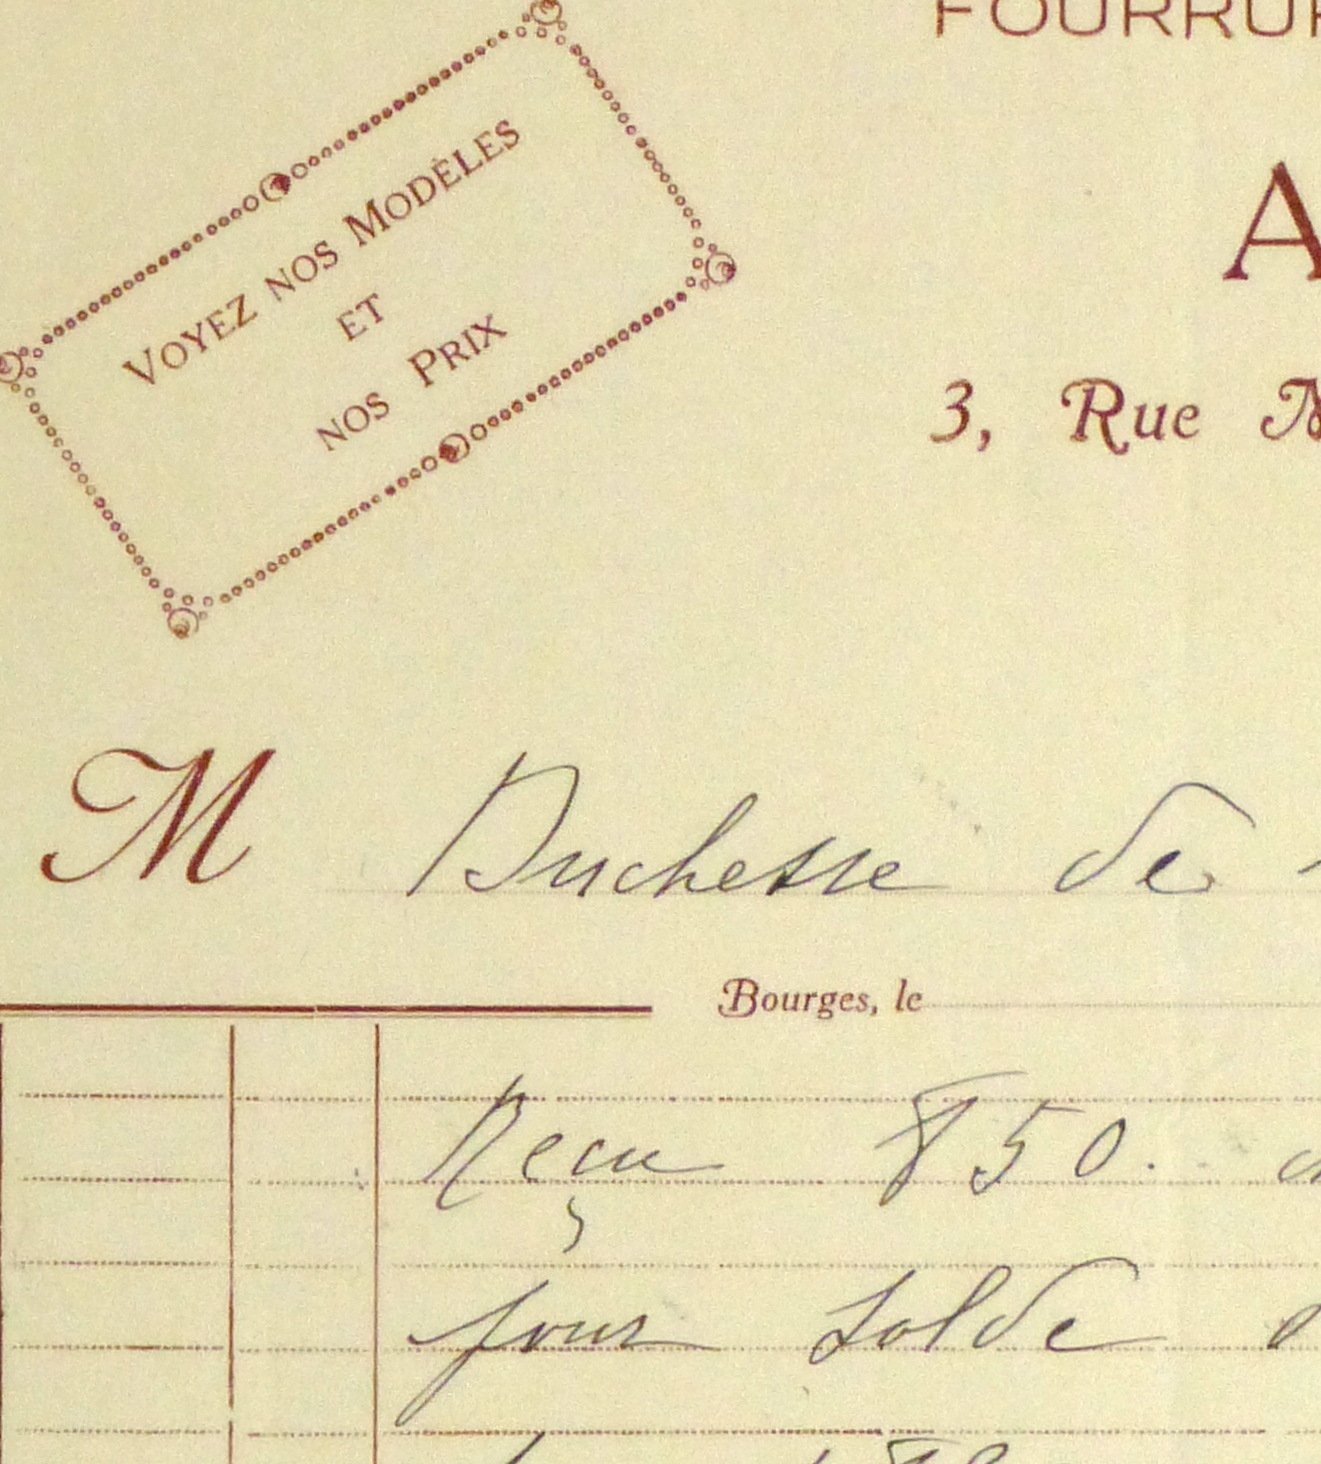 VOYEZ NOS MODÈLES
ET
NOS PRIX
3, Rue
M Duchesse de
Bourges, le
Reçu 850.
pour solde